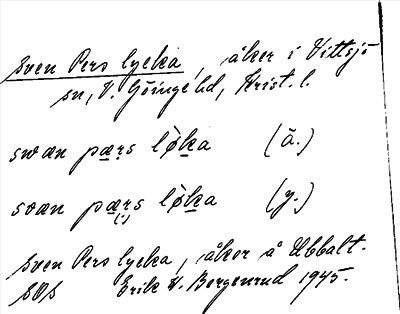 Sven Pers lycka, åker i Vittsjö
sn, V. Göinge hd, Krist. l.
swæn pæṛs lø̀ka (ä.)
svæn pæṛs lø̀ka (y.)
(?)
Sven Pers lycka, åker å Ubbalt.
SOS Erik W. Bergenrud 1945.